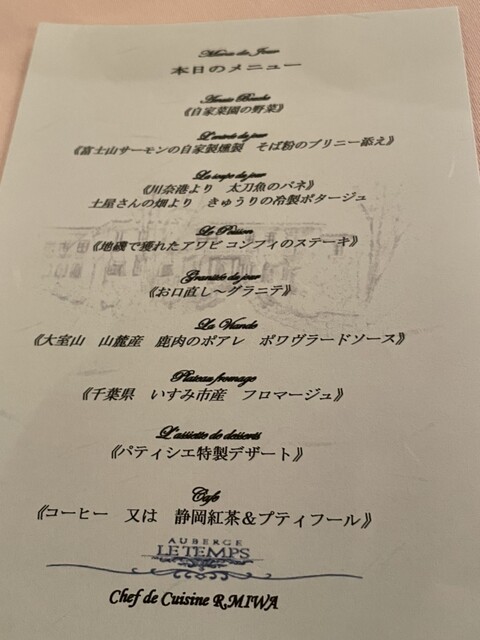 Menu du Jour
本日のメニュー
Amuse Bouche
《自家菜園の野菜》
L'entrée du jour
《富士山サーモンの自家製燻製 そば粉のブリニー添え》
La soupe du jour
《川奈港より 太刀魚のパネ》
土屋さんの畑より きゅうりの冷製ポタージュ
Le Poisson
《地磯で獲れたアワビ コンフィのステーキ》
Granitée du jour
《お口直し～グラニテ》
La Viande
《大室山 山麓産 鹿肉のポアレ ポワヴラードソース》
Plateau fromage
《千葉県 いすみ市産 フロマージュ》
L'assiette de desserts
《パティシエ特製デザート》
Cafe
《コーヒー 又は 静岡紅茶＆プティフール》
AUBERGE
LE TEMPS
Chef de Cuisine R.MIWA